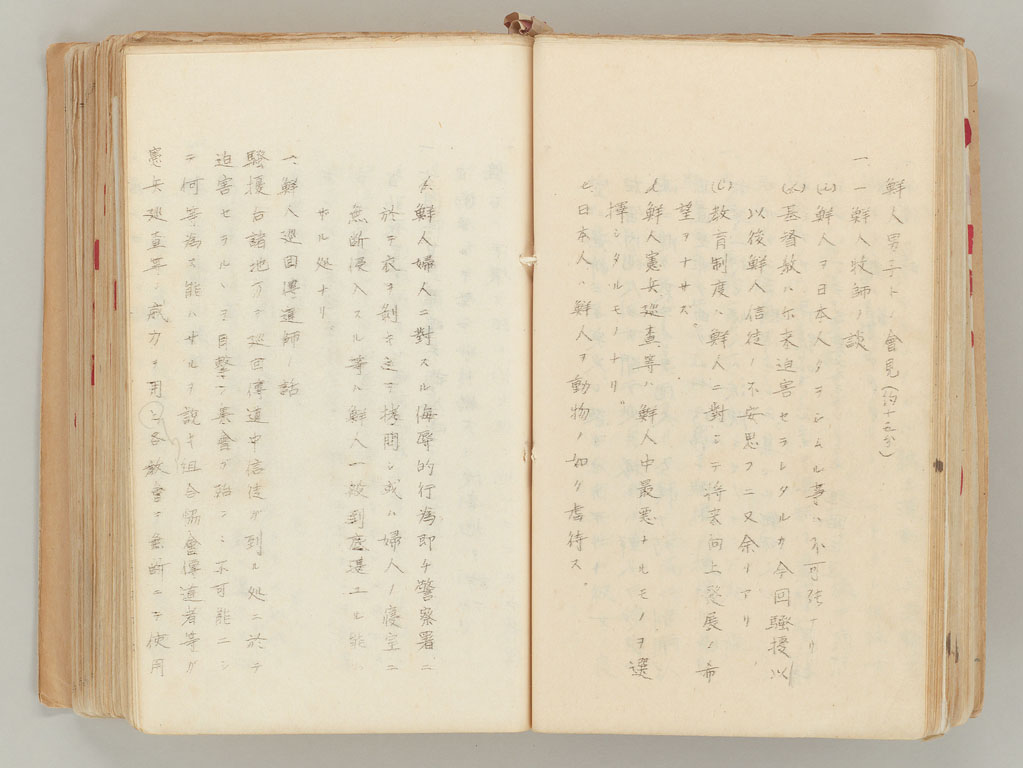 鮮人男三人トノ會見(約十五分)
一 一鮮人牧師ノ談
(イ)鮮人ヲ日本人タラシムル事ハ不可能ナリ
(ロ)基督教ハ元来迫害セラレタルカ今回騒擾以
以後鮮人信徒ノ不安思フニ又余リアリ
教育制度ハ鮮人ニ對シテ将来向上発展ノ希
望ヲナサズ
鮮人憲兵巡査等ハ鮮人中最悪ナルモノヲ選
擇シタルモノナリ。
日本人ハ鮮人ヲ動物ノ如ク虐待ス。
鮮人婦人ニ對スル侮辱的行為即チ警察署ニ
於テ衣ヲ剝キ立テ拷問シ或ハ婦人ノ寝室ニ
無断侵入スル等ハ鮮人一般到底堪エル能ハ
サル処ナリ
一、鮮人巡回傳道師ノ話
騒擾各諸地方ヲ巡回傳道中信徒ガ到ル処ニ於テ
迫害セラルヽヲ目撃シ集會ガ殆ンド不可能ニシ
テ何等為ス能ハサルヲ説キ組合協會傳道者等ガ
憲兵巡査等ノ威力ヲ用ヒ各教會ヲ無断ニテ使用